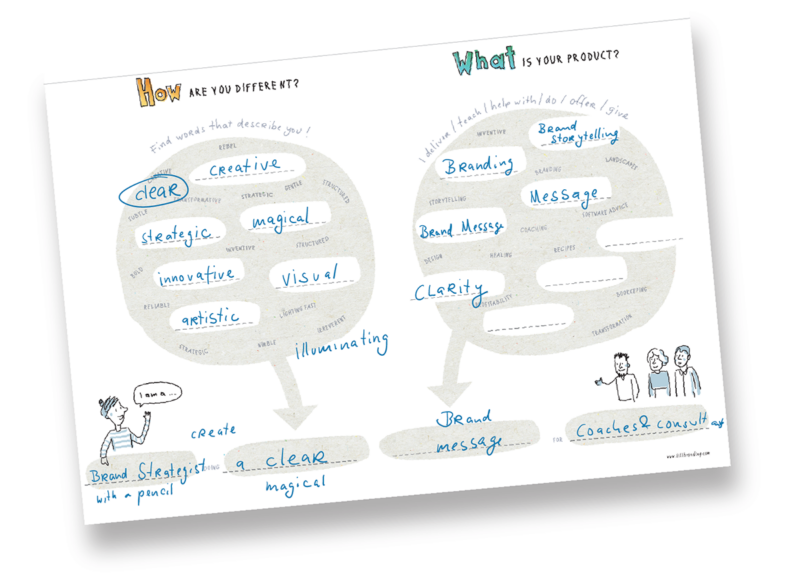 How ARE YOU DIFFERENT?
Find words that describe you!
REBEL
creative
clear
TRANSFORMATIVE
STRATEGIC
GENTLE
STRUCTURED
SUBTLE
magical
strategic
INVENTIVE
STRUCTURED
BOLD
innovative
visual
RELIABLE
artistic
LIGHTNING FAST
IRREVERENT
STRATEGIC
NIMBLE
illuminating
I am a ...
create
Brand Strategist
with a pencil
a clear
magical
What IS YOUR PRODUCT?
I deliver / teach / help with / do / offer / give
INVENTIVE
Brand
Storytelling
Branding
BRANDING
LANDSCAPES
STORYTELLING
Message
SOFTWARE ADVICE
Brand Message
COACHING
DESIGN
HEALING
RECIPES
Clarity
BOOKKEEPING
TRANSFORMATION
Brand
message
FOR
Coaches & consult